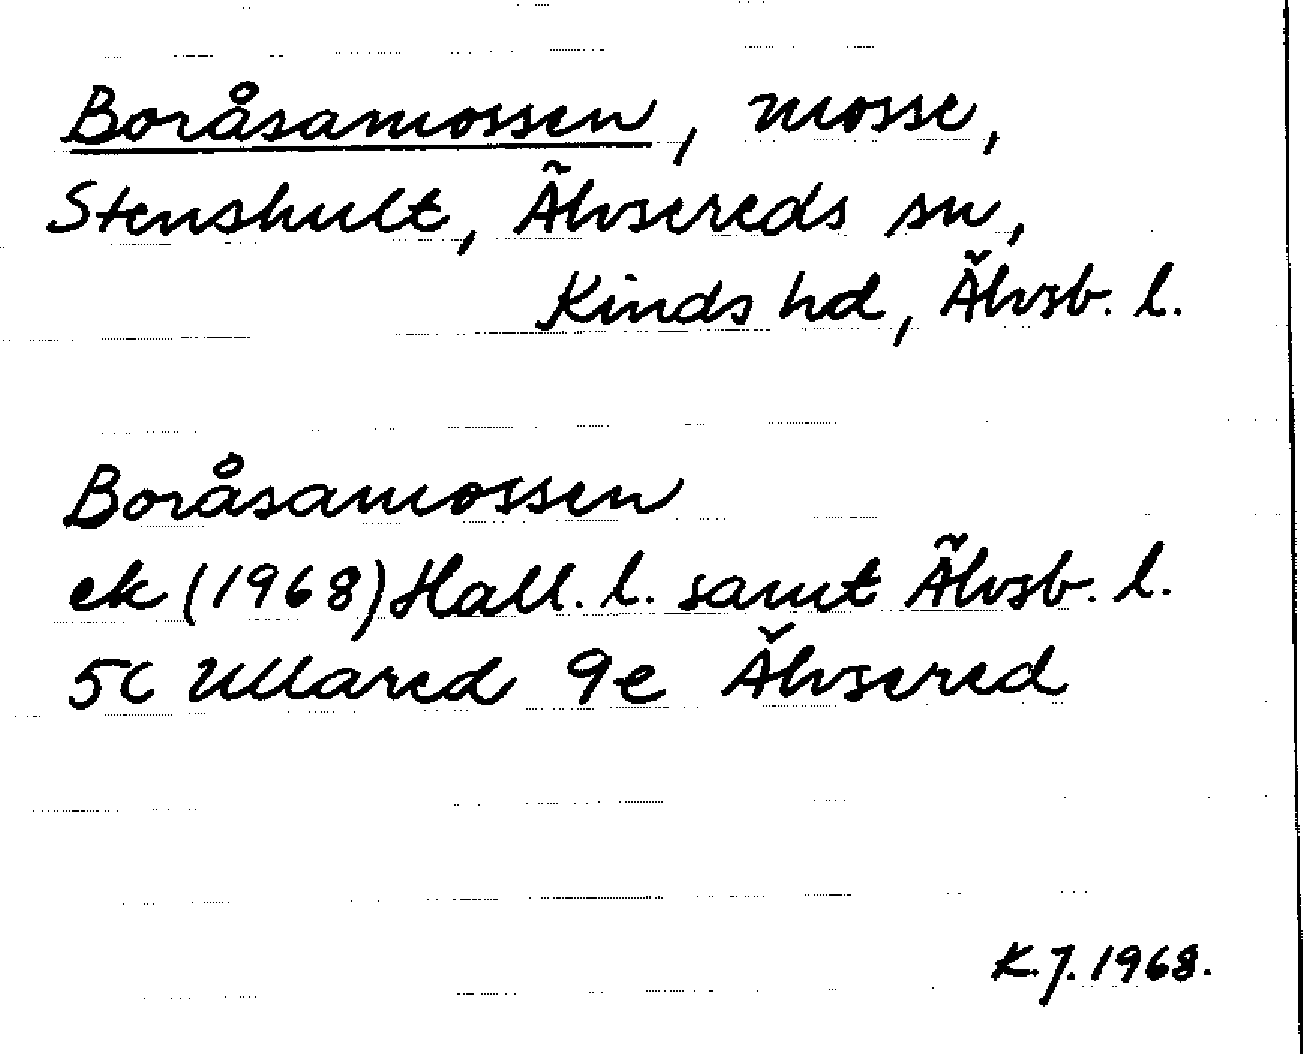 Boråsamossen, mosse,
Stenshult, Älvsereds sn,
Kinds hd, Älvsb. l.
Boråsamossen
ek (1968) Hall. l. samt Älvsb. l.
5C Ullared 9e Älvsered
K.J. 1968.